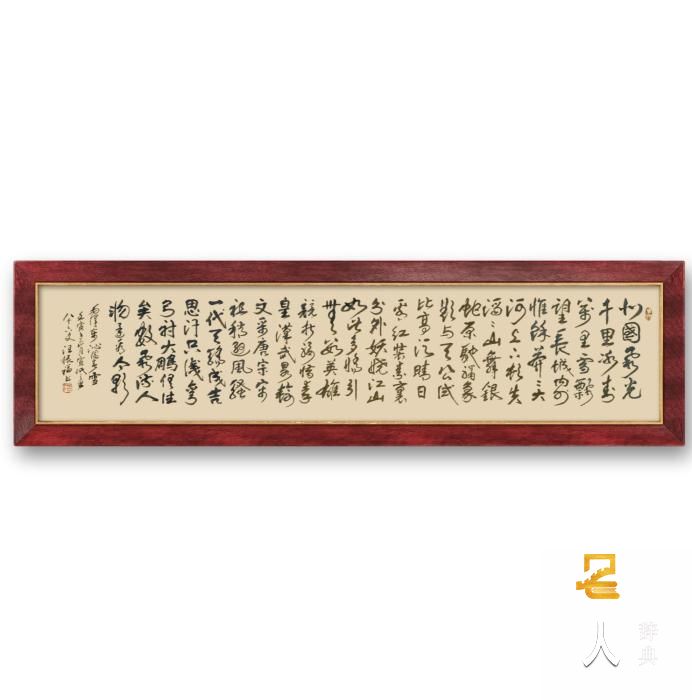 北國風光
千里冰封
萬里雪飄
望長城內外
惟餘莽〻大
河上下頓失
滔〻山舞銀
蛇原馳蠟象
欲與天公試
比高須晴日
看紅裝素裹
分外妖嬈江山
如此多嬌引
無數英雄
競折腰惜秦
皇漢武略輸
文采唐宗宋
祖稍遜風騷
一代天驕成吉
思汗只識彎
弓射大鵰俱往
矣數風流人
物還看今朝
毛澤東沁園春雪
名
人
辞典